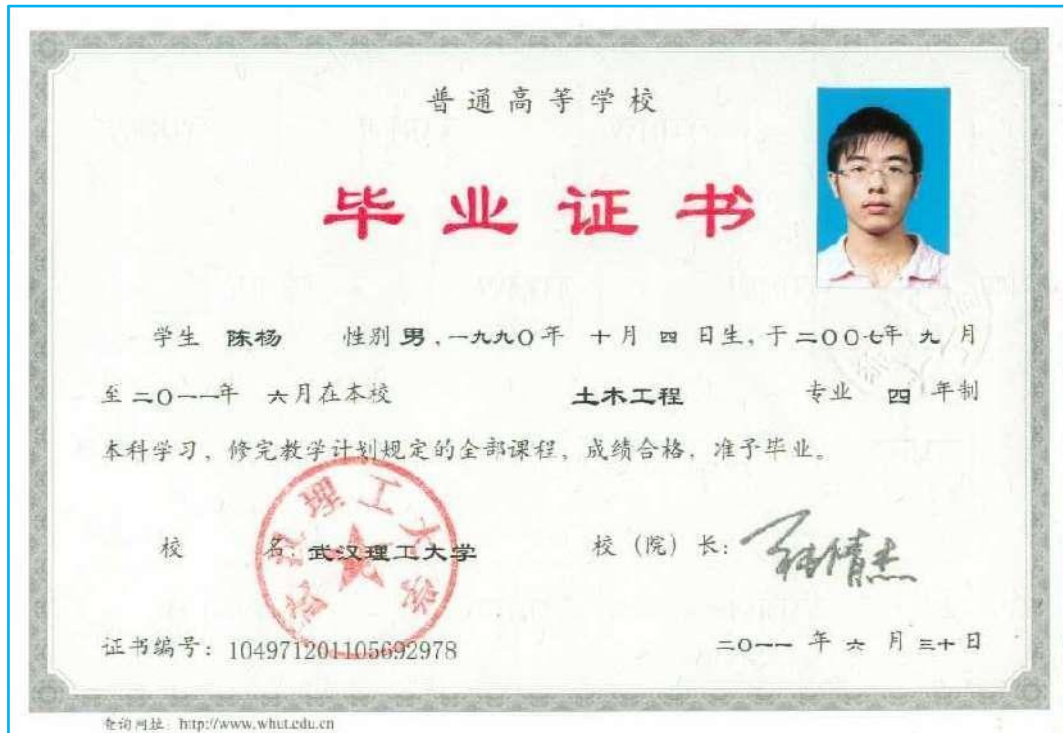 普通高等学校
毕业证书
学生 陈杨 性别 男，一九九〇年 十月 四 日生，于二〇〇七年 九 月
至二〇一一年 六月在本校 土木工程 专业 四 年制
本科学习，修完教学计划规定的全部课程，成绩合格，准予毕业。
武汉理工大学
校 名：武汉理工大学 校（院）长：
证书编号：104971201105692978 二〇一一 年 六 月 三十日
查询网址：http://www.whut.edu.cn